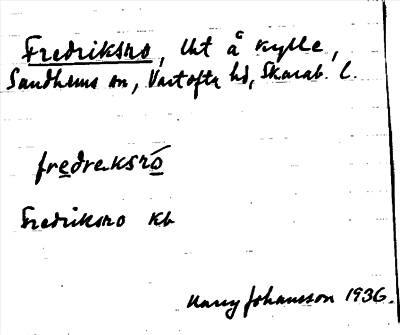 Fredriksro, lht å Kylle,
Sandhems sn, Vartofta hd, Skarab. l.
fredreksró
Fredriksro kb
Harry Johansson 1936.